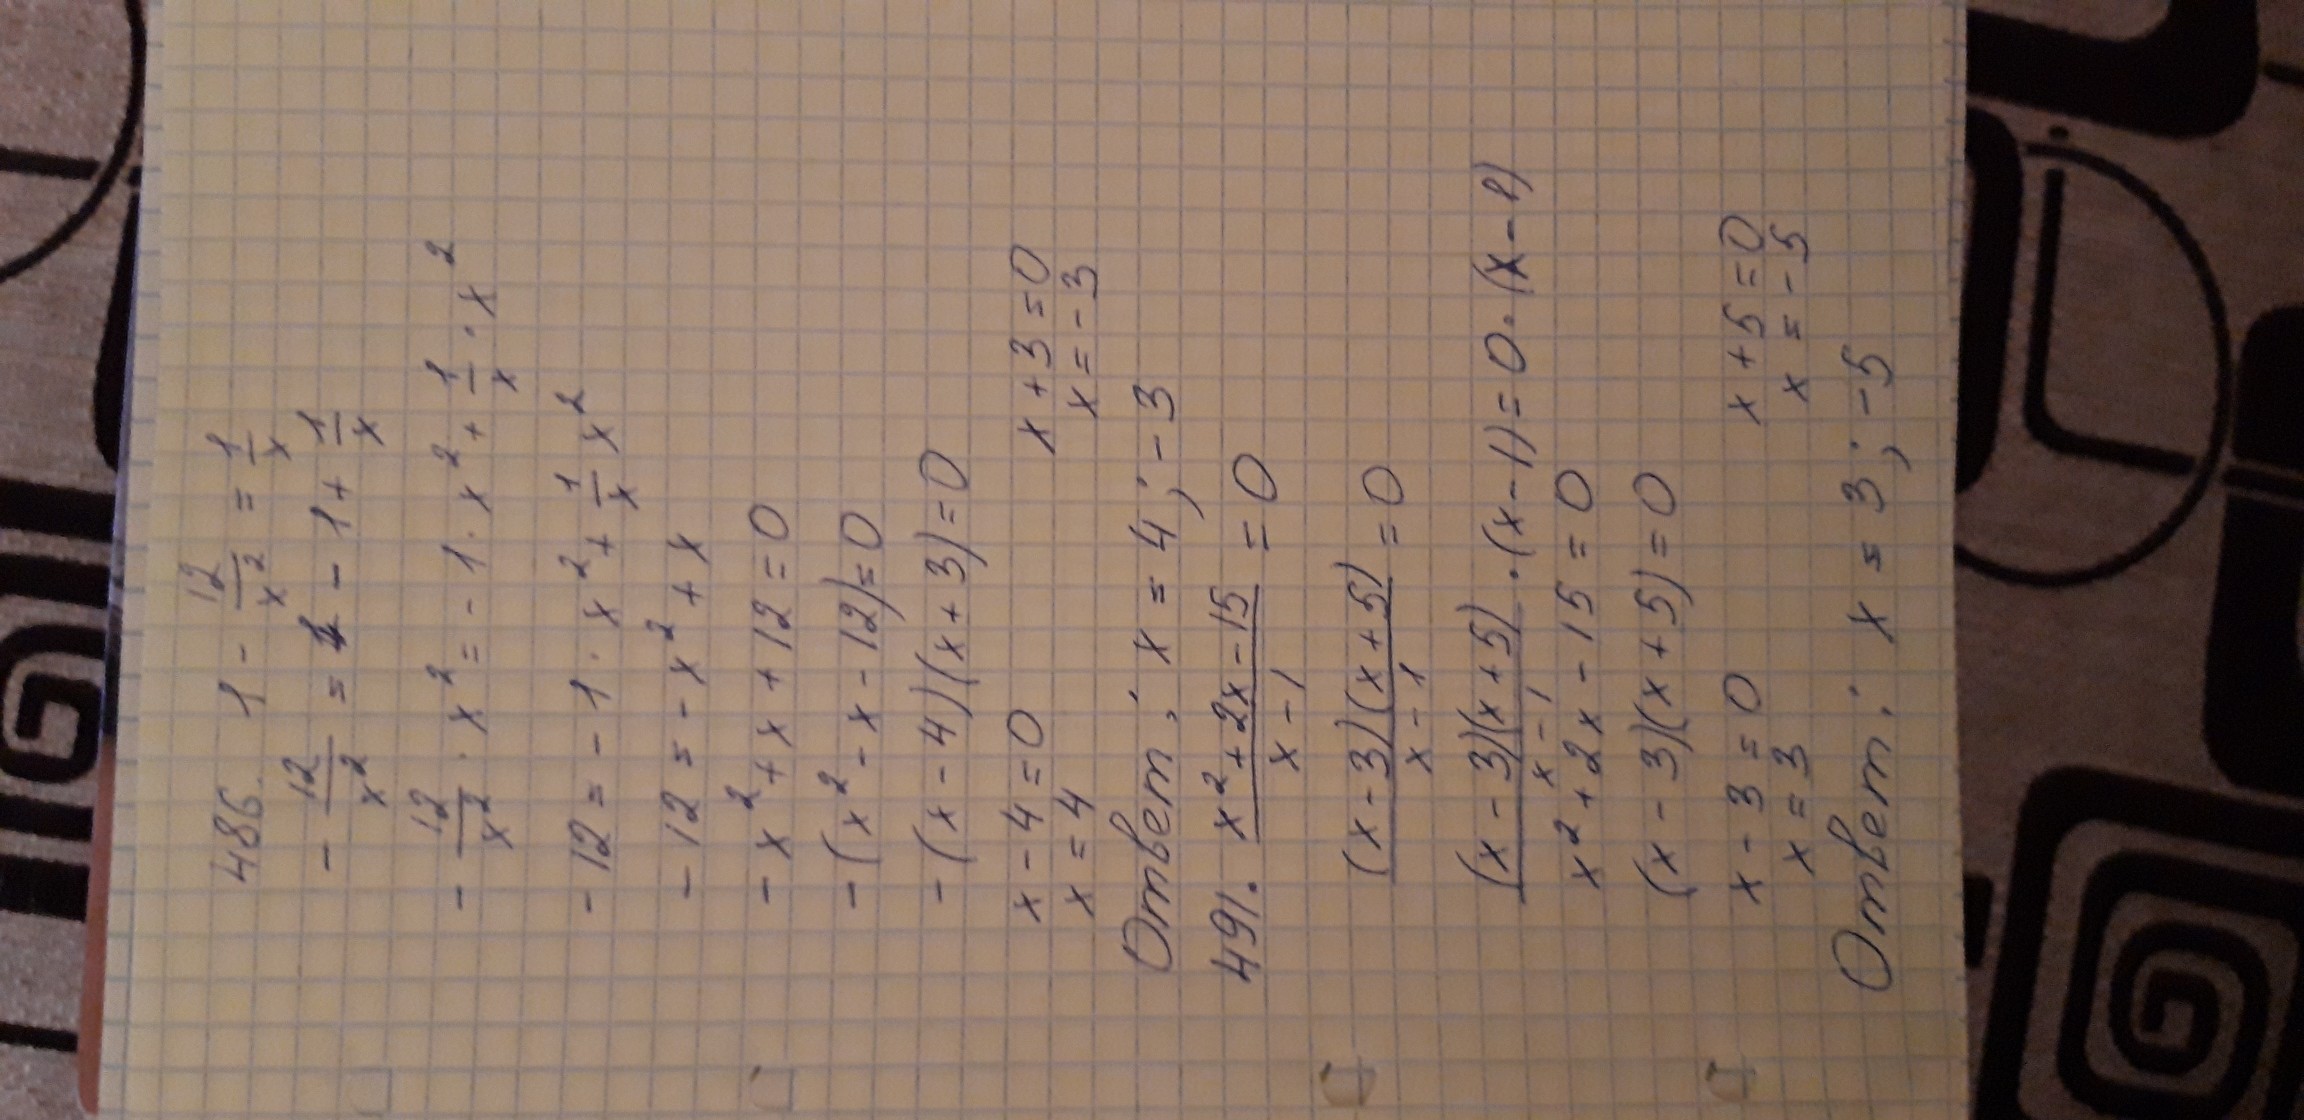 486. 1 - 12/x² = 1/x
- 12/x² = - 1 + 1/x
- 12/x² · x² = - 1 · x² + 1/x · x²
- 12 = - 1 · x² + 1/x x²
- 12 = - x² + x
- x² + x + 12 = 0
- (x² - x - 12) = 0
- (x - 4)(x + 3) = 0
x - 4 = 0 x + 3 = 0
x = 4 x = - 3
Ответ: x = 4; - 3
491. x² + 2x - 15 / x - 1 = 0
(x - 3)(x + 5) / x - 1 = 0
(x - 3)(x + 5) / x - 1 · (x - 1) = 0 · (x - 1)
x² + 2x - 15 = 0
(x - 3)(x + 5) = 0
x - 3 = 0 x + 5 = 0
x = 3 x = - 5
Ответ: x = 3; - 5